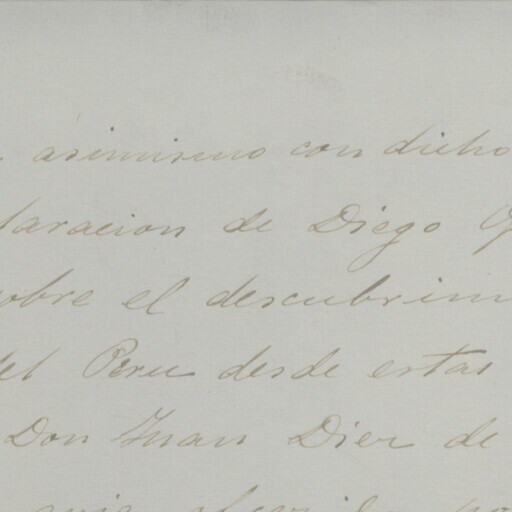 asimismo con dicho
laracion de Diego
obre el descubrim
del Peru desde estas
Don Juan Diez de